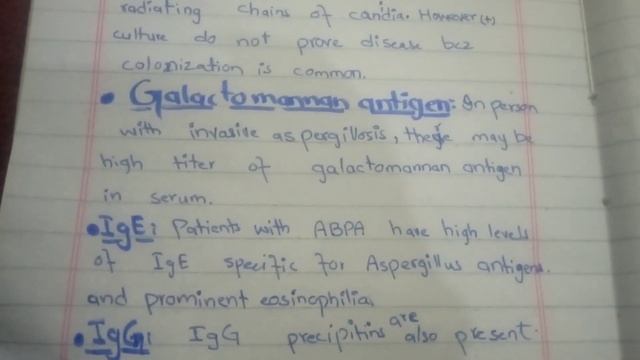 radiating chains of candia. However (+)
culture do not prove disease bcz
colonization is common.
• Galactomannan antigen: In person
with invasive aspergillosis, there may be
high titer of galactomannan antigen
in serum.
• IgE: Patients with ABPA have high levels
of IgE specific for Aspergillus antigens.
and prominent eosinophilia.
• IgG: IgG precipitins are also present.